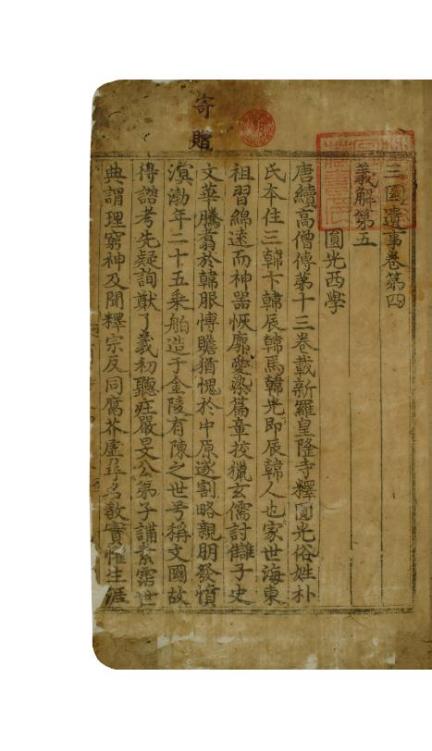 三國遺事卷第四
義解第五
圓光西學
唐續高僧傳第十三卷載新羅皇隆寺釋圓光俗姓朴
氏本住三韓卞韓辰韓馬韓光即辰韓人也家世海東
祖習綿遠而神器恢廓愛染篇章挍獵玄儒討讎子史
文華騰翥於韓服愽贍猶愧於中原遂割略親朋發憤
溟渤年二十五乗舶造于金陵有陳之世号稱文國故
得諮考先疑詢猷了義初聽荘嚴旻公弟子講素霑世
典謂理窮神及聞釋宗反同腐芥虛尋名教實懼生涯
寄贈